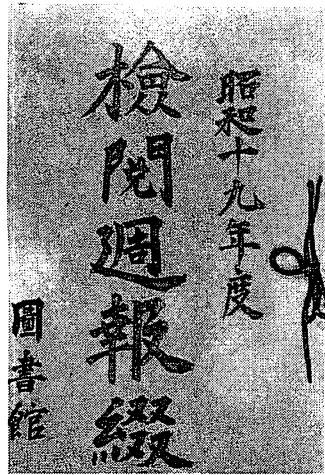 昭和十九年度
檢閲週報綴
圖書館